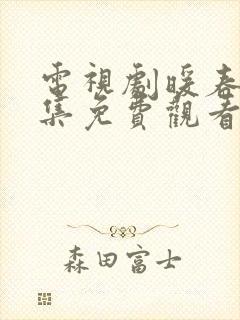 電視劇暖春
集免費觀看
森田富士